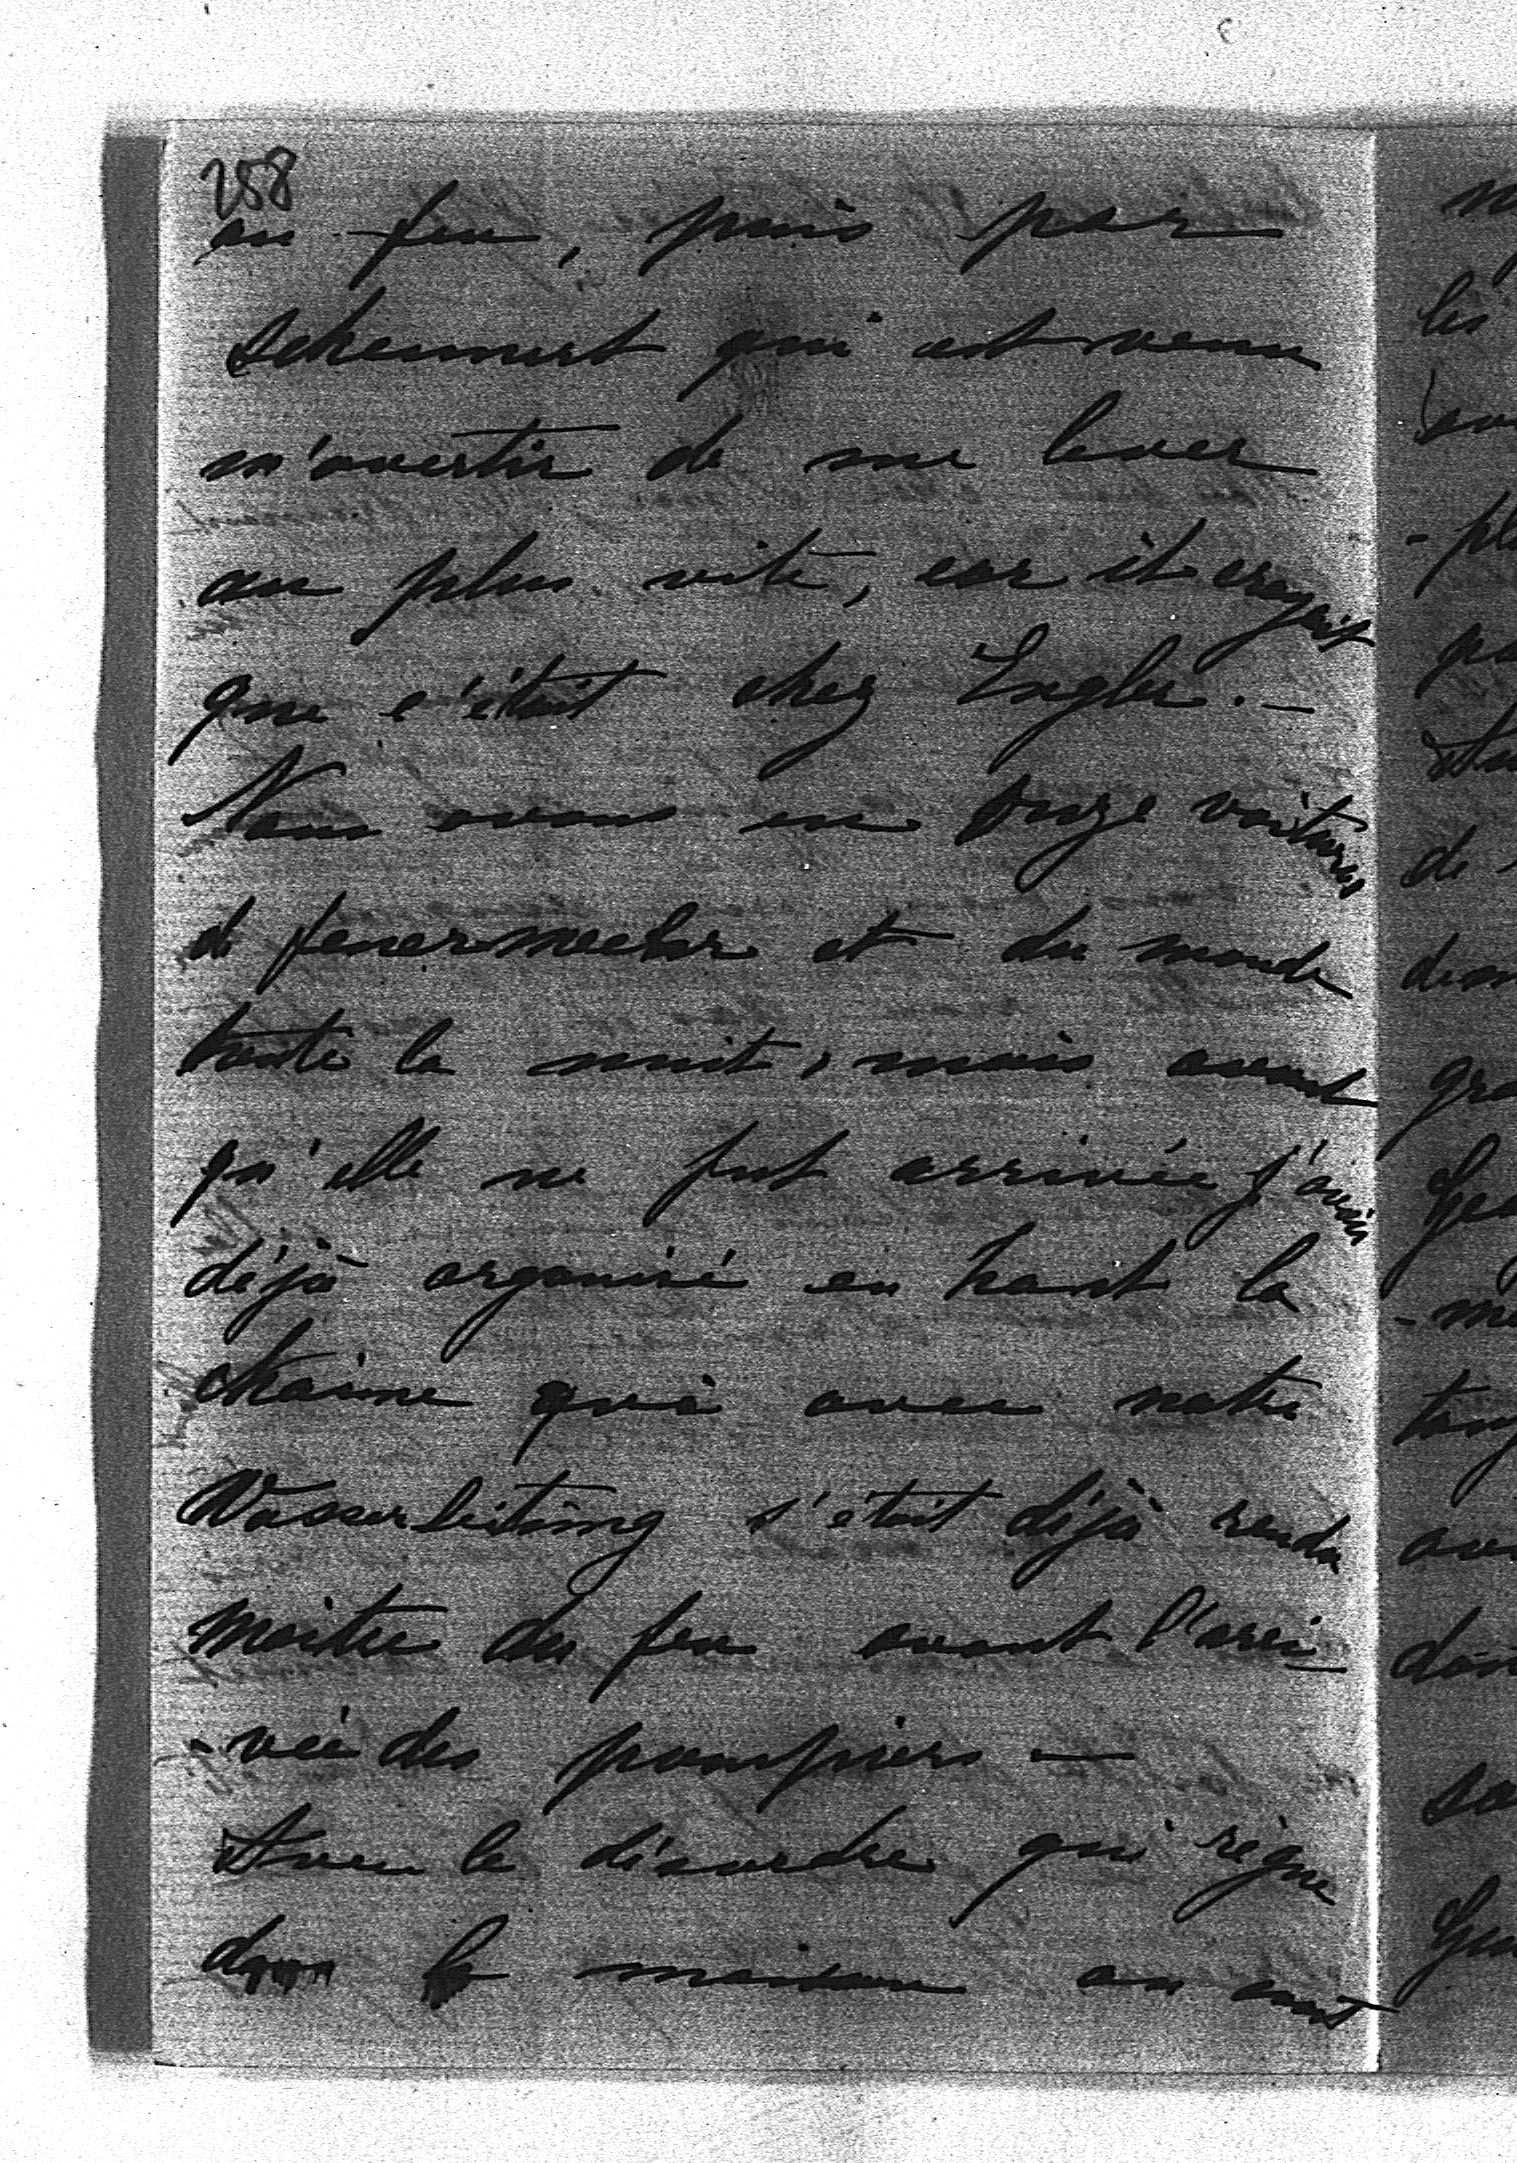 258
au feu, puis par
Scheunert qui est venu
m'avertir de me lever
au plus vite, car il croyait
que c'était chez Engler. —
Nous avons eu onze voitures
de feuerwehr et du monde
toute la nuit, mais avant
qu'elle ne fut arrivée j'avais
déjà organisé en haut la
chaine qui avec notre
Wasserleitung s'était déjà rendu
maitre du feu avant l'arri-
-vée des pompiers —
Avec le désordre qui règne
dans la maison on eut